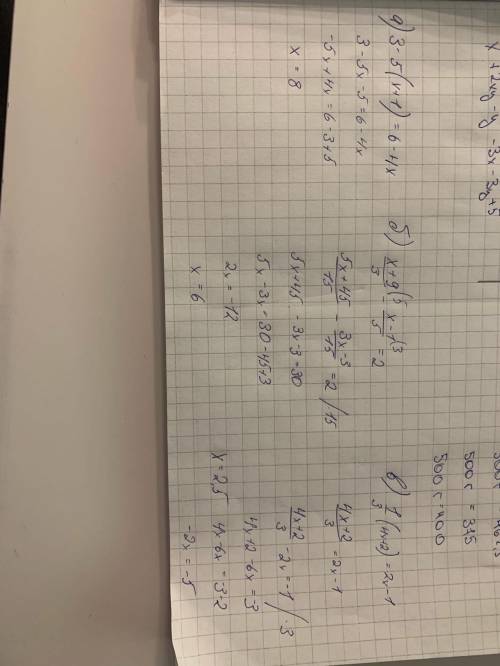 500 г = 400
а) 3-5(x+1)=6-4x
3-5x-5=6-4x
-5x+4x=6-3+5
x = 8
б) (x+9)/3 (5 - (x-1)/5 (3 = 2
(5x+45)/15 - (3x-3)/15 = 2 /15
5x+45 - 3x-3=30
5x-3x=30-45+3
2x = -12
x = 6
в) 1/3 (4x+2) = 2x-1
(4x+2)/3 = 2x-1
(4x+2)/3 - 2x = -1 /·3
4x+2-6x=-3
4x-6x=-3-2
-2x = -5
x = 2,5